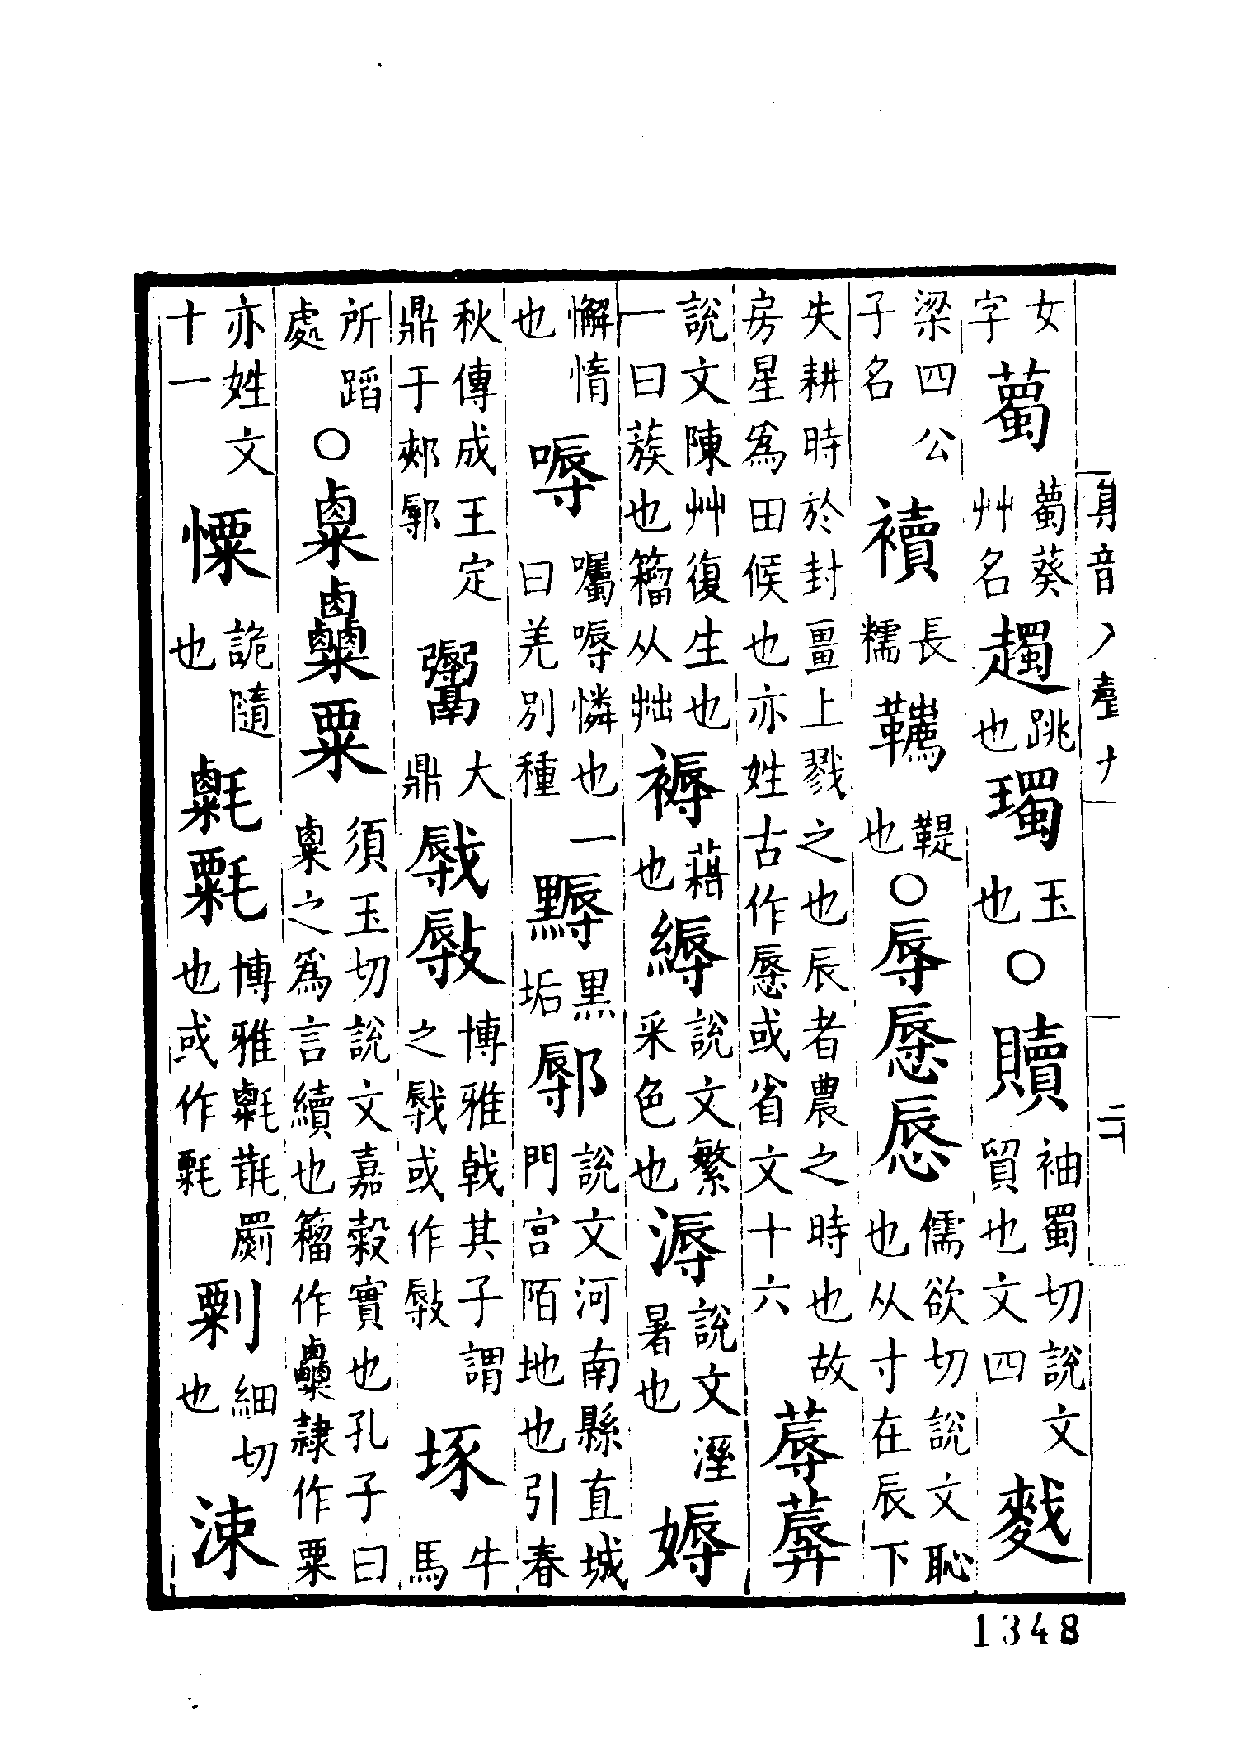 女字 薥 薥葵艸名 趯 跳也 璹 玉也 ○ 贖 袖蜀切說文貿也文四
梁四公子名 襩 長襦 韣 鞮也 ○ 辱 儒欲切說文恥也从寸在辰下
失耕時於封畺上戮之也辰者農之時也故房星爲田候也亦姓古作或省文十六 蓐
說文陳艸復生也一曰蔟也籀从茻 褥 藉也 縟 說文繁采色也 溽 說文溼暑也 媷
懈惰也 嗕 囑嗕憐也一曰羌別種 黑垢 鄏 說文河南縣直城門宫陌地也引春
秋傳成王定鼎于郟鄏 大鼎 博雅戟其子謂之或作 㧻 牛馬
所蹈處 ○ 粟 須玉切說文嘉穀實也孔子曰之爲言續也籀作隸作粟
亦姓文十一 憟 詭隨也 博雅罽也或作 細切也 涑
1348